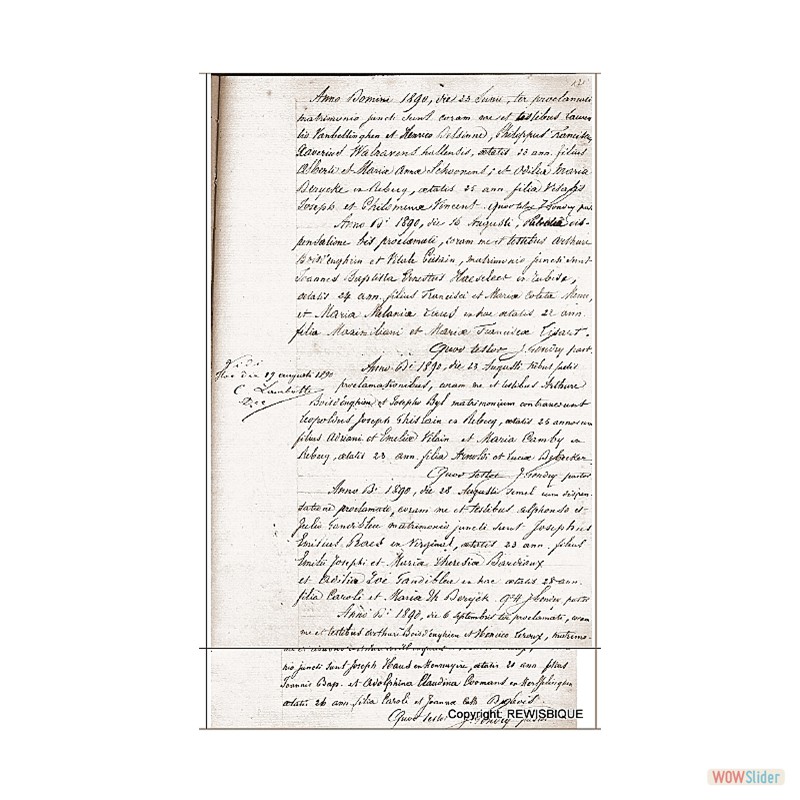 121
Anno Domini 1890, die 23 Junii, ter proclamati
matrimonio juncti sunt coram me et testibus Lauren
tio Vanbellinghen et Henrico Delsinne, Philippus Franciscus
Xaverius Walravens hallensis, ætatis 23 ann. filius
Alberti et Mariæ Annæ Schoonens; et Odilia Maria
Derycke en Rebecq, ætatis 25 ann. filia
Joseph et Philomenæ Vincent. Quod testor J. Gondry past.
Anno Dⁱ 1890, die 16 Augusti, dis-
pensatione bis proclamati, coram me et testibus Arthuro
Boisd'enghien et Vitale, matrimonio juncti sunt
Joannes Baptista Ernestus en
ætatis 24 ann. filius Francisci et Mariæ
et Maria Melania en hac ætatis 22 ann.
filia Maximiliani et Mariæ Franciscæ
Quod testor J. Gondry past.
Vidi
Hac die 29 augusti 1890
C. Lambotte
Dec
Anno Dⁱ 1890, die 23 Augusti tribus factis
proclamationibus, coram me et testibus Arthuro
Boisd'enghien et Josepho Byl matrimonium contraxerunt
Leopoldus Joseph Ghislain en Rebecq, ætatis 25 annorum
filius Adriani et Emeliæ Vilain et Maria Camby en
Rebecq, ætatis 23 ann. filia Arnoldi et Luciæ
Quod testor J. Gondry pastor
Anno Dⁱ 1890, die 28 Augusti semel cum dispen-
satione proclamati, coram me et testibus Alphonso et
Julio Tandibleu matrimonio juncti sunt Josephus
Emilius en Virginal, ætatis 23 ann. filius
Emilii Josephi et Mariæ Theresiæ
et Odilia Zoé Tandibleu en hac ætatis 28 ann.
filia Caroli et Mariæ Th Deryck. J. Gondry pastor
Anno Dⁱ 1890, die 6 septembris ter proclamati, coram
me et testibus Arthuro Boisd'enghien et Henrico Leroux, matrimo-
nio juncti sunt Joseph Haus en, ætatis 21 ann filius
Joannis Bap. et Adolphinæ Claudina Coomans en
ætatis 26 ann filia Caroli et Joannæ Cath
Quod testor J. Gondry pastor
Copyright REWISBIQUE
WOWSlider